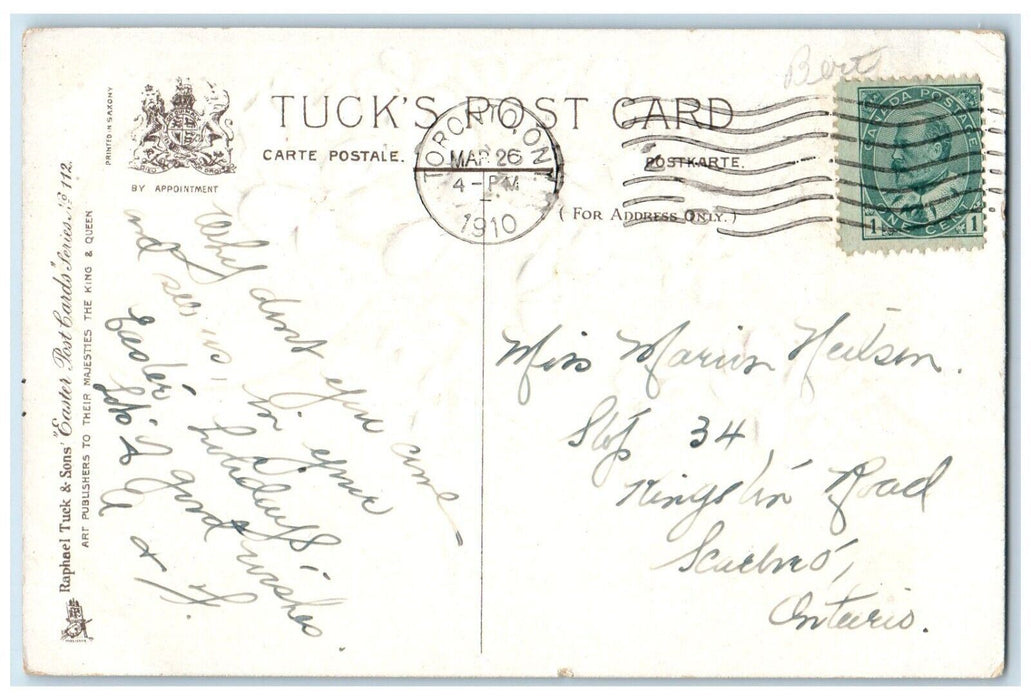 Bert
TUCK'S POST CARD
CARTE POSTALE.
POSTKARTE.
( FOR ADDRESS ONLY. )
BY APPOINTMENT
PRINTED IN SAXONY
Raphael Tuck & Sons' "Easter Post Cards" Series No 112.
ART PUBLISHERS TO THEIR MAJESTIES THE KING & QUEEN
TORONTO, ONT
MAR 26
4 - PM
1910
CANADA POSTAGE
1 ONE CENT 1
Why dont you come
and see us in your
Easter holidays.
good wishes
Miss Marion Neilson.
Stop 34
Kingston Road
Scarboro,
Ontario.